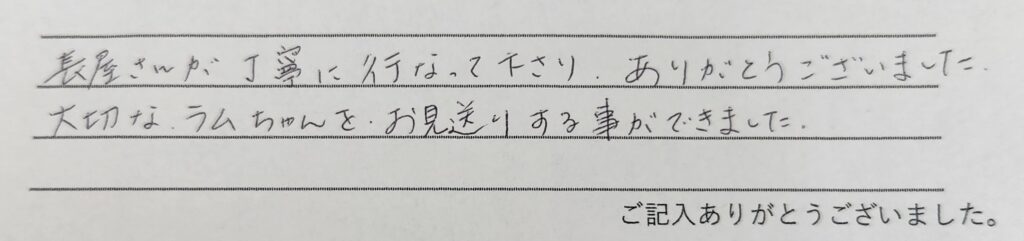 長屋さんが丁寧に行なって下さり、ありがとうございました。
大切な、ラムちゃんを、お見送りする事ができました。
ご記入ありがとうございました。